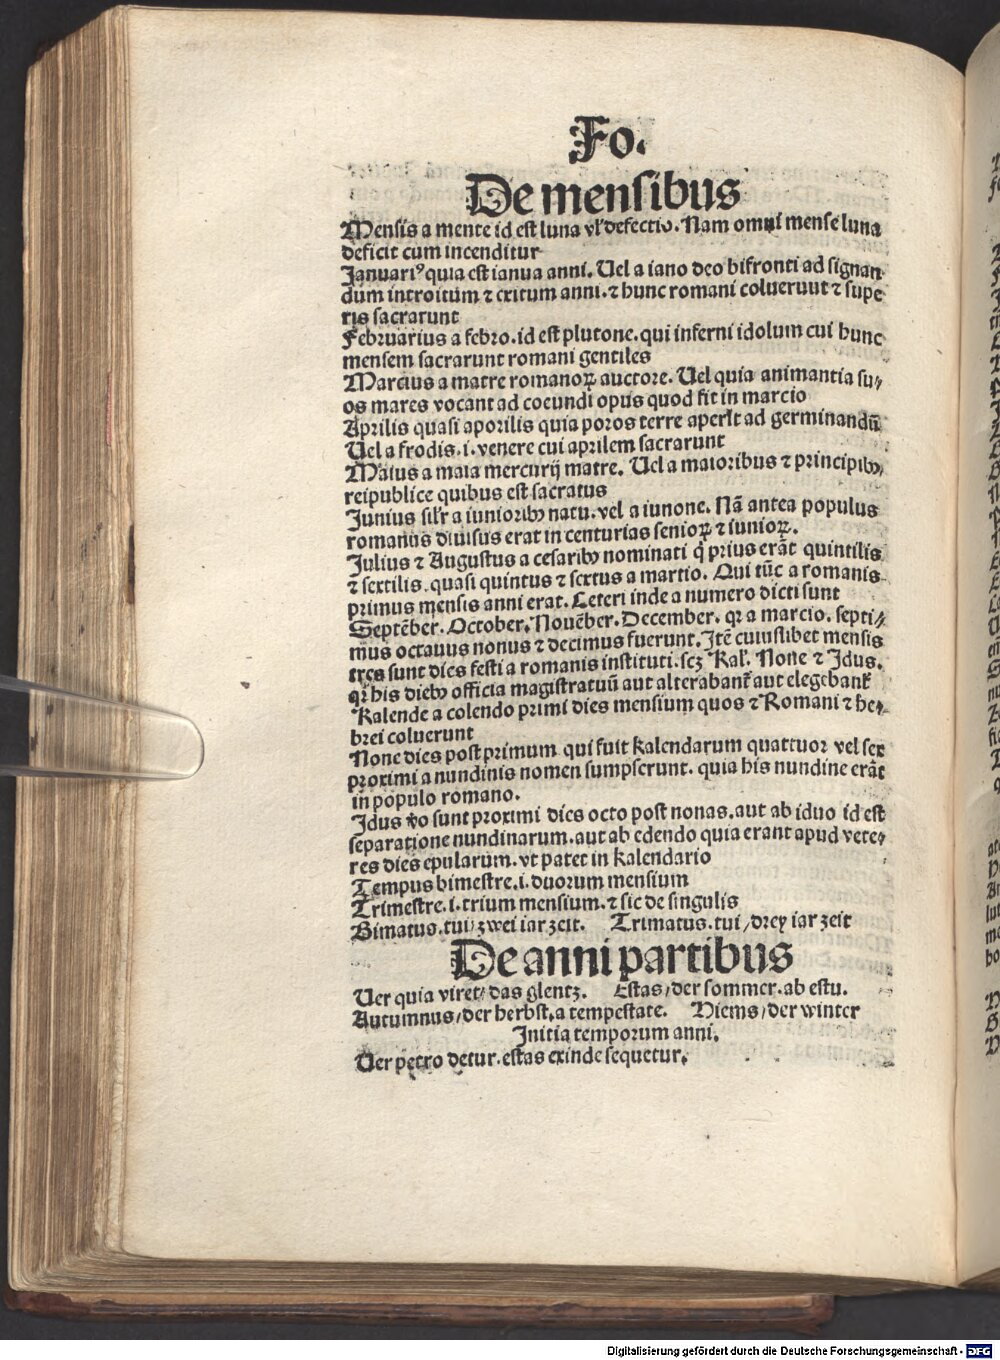 Fo.
De mensibus
Mensis a mente id est luna vl' defectiō. Nam omni mense luna
deficit cum incenditur
Januariꝰ quia est ianua anni. Uel a iano deo bifronti ad signan⸗
dum introitum ⁊ exitum anni. ⁊ hunc romani coluerunt ⁊ supe
ris sacrarunt
Februarius a febro. id est plutone. qui inferni idolum cui hunc
mensem sacrarunt romani gentiles
Marcius a matre romanoꝝ auctore. Uel quia animantia su⸗
os mares vocant ad coeundi opus quod fit in marcio
Aprilis quasi aporilis quia poros terre aperit ad germinandū
Uel a frodis .i. venere cui aprilem sacrarunt
Maius a maia mercurij matre. Uel a maioribus ⁊ principibꝰ
reipublice quibus est sacratus
Junius sil'r a iunioribꝰ natu. vel a iunone. Nā antea populus
romanus diuisus erat in centurias senioꝝ ⁊ iunioꝝ.
Julius ⁊ Augustus a cesaribꝰ nominati q̄ prius erāt quintilis
⁊ sextilis. quasi quintus ⁊ sextus a martio. Qui tūc a romanis
primus mensis anni erat. Ceteri inde a numero dicti sunt
Septēber. October. Nouēber. December. qꝛ a marcio. septi⸗
mus octauus nonus ⁊ decimus fuerunt. Itē cuiuslibet mensis
tres sunt dies festi a romanis instituti. scꝫ Kal'. None ⁊ Idus.
qꝛ his diebꝰ officia magistratuū aut alterabant᷑ aut elegebant᷑
Kalende a colendo primi dies mensium quos ⁊ Romani ⁊ he⸗
brei coluerunt
None dies post primum qui fuit kalendarum quattuor vel sex
proximi a nundinis nomen sumpserunt. quia his nundine erāt
in populo romano.
Idus v̄o sunt proximi dies octo post nonas. aut ab iduo id est
separatione nundinarum. aut ab edendo quia erant apud vete⸗
res dies epularum. vt patet in kalendario
Tempus bimestre .i. duorum mensium
Trimestre .i. trium mensium. ⁊ sic de singulis
Bimatus. tui / zwei iar zeit. Trimatus. tui / drey iar zeit
De anni partibus
Uer quia viret / das glentz. Estas / der sommer. ab estu.
Autumnus / der herbst. a tempestate. Hiems / der winter
Initia temporum anni.
Uer petro detur. estas exinde sequetur.
Digitalisierung gefördert durch die Deutsche Forschungsgemeinschaft - DFG